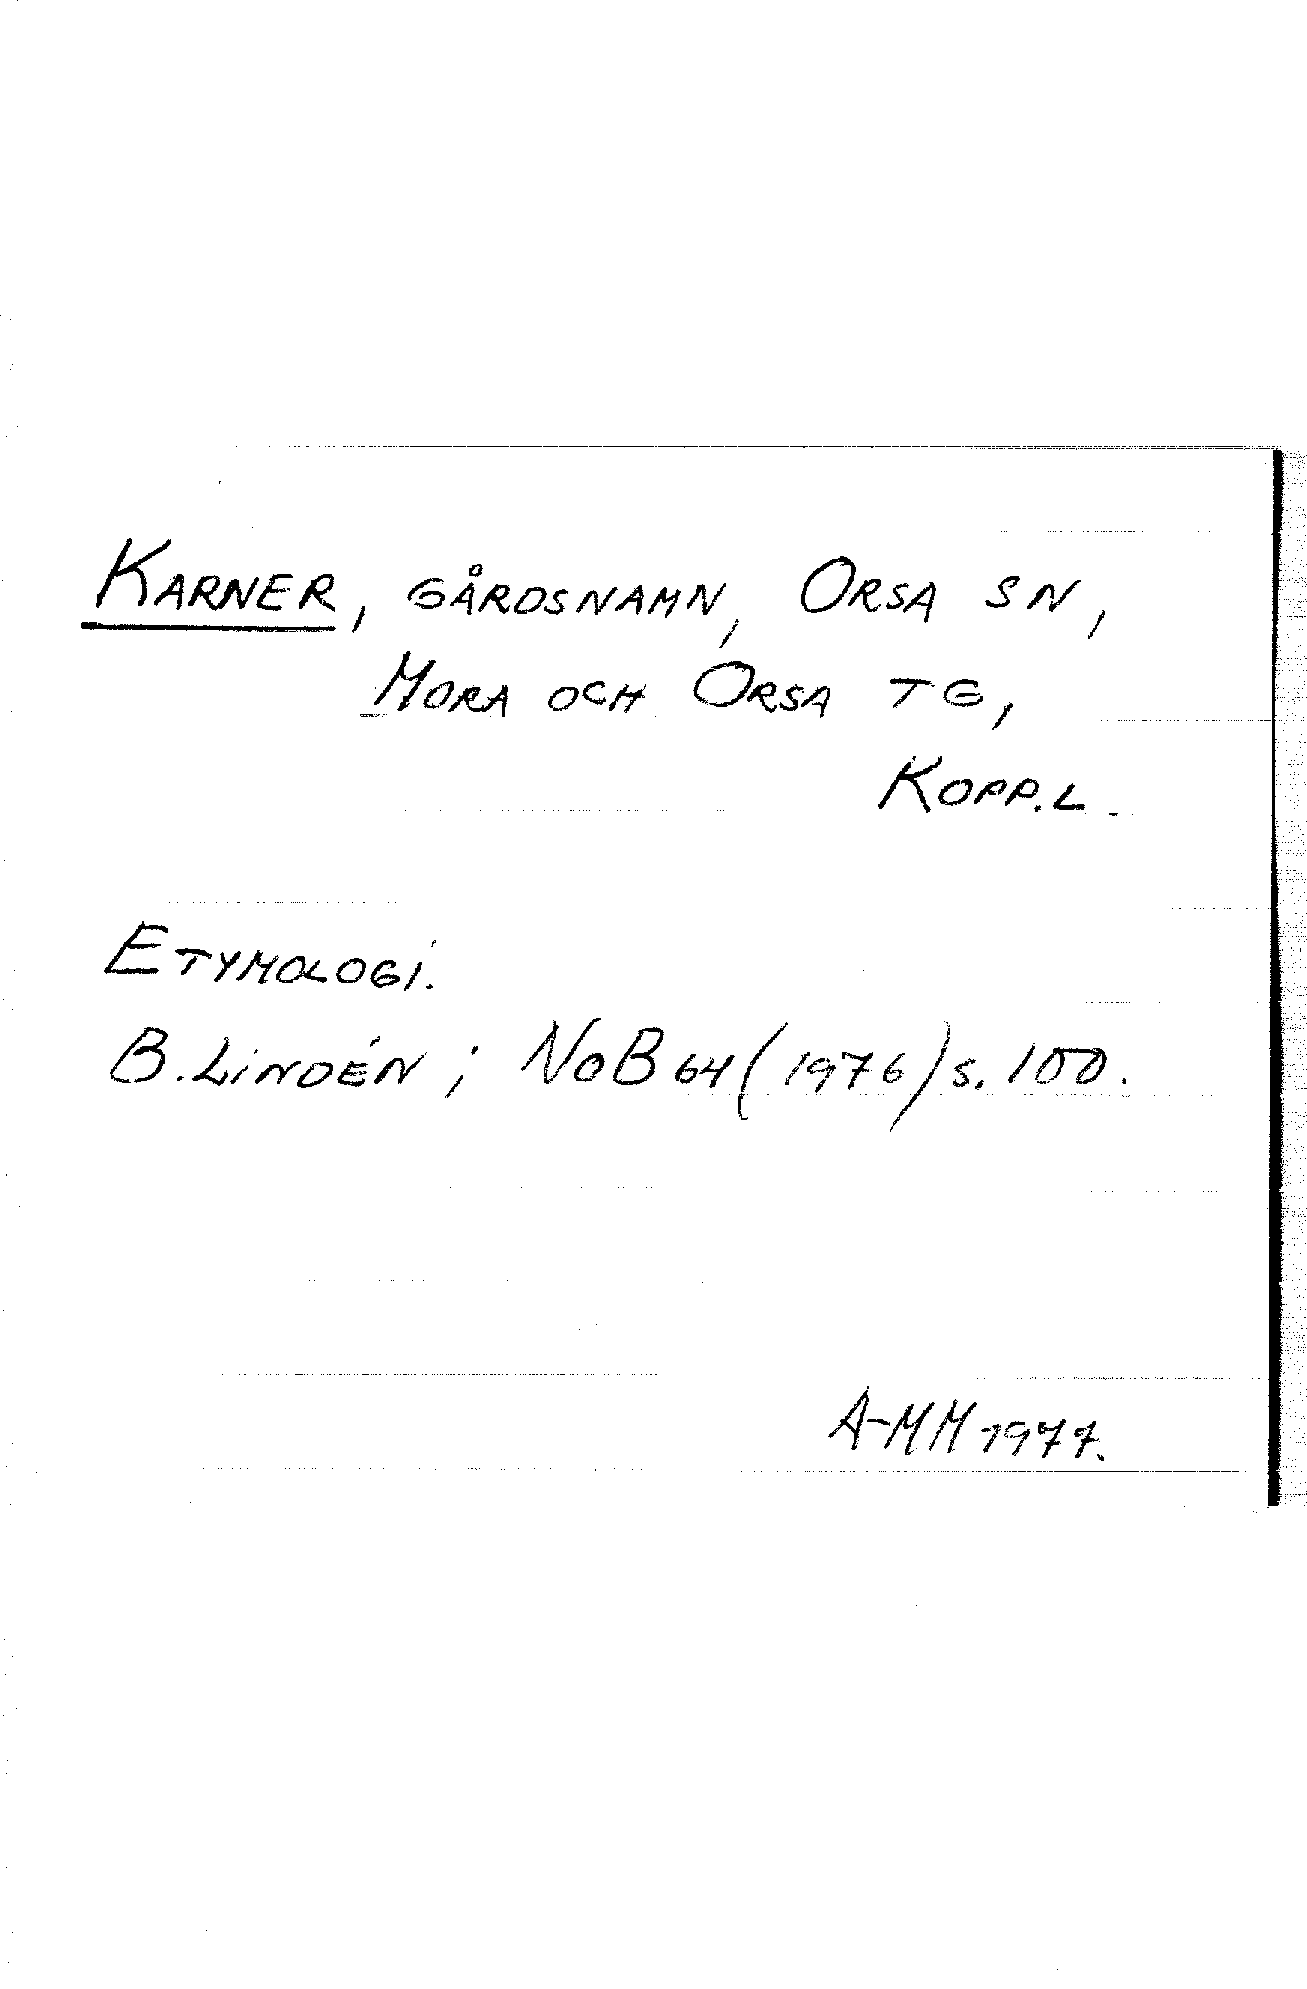 KARNER, GÅRDSNAMN, ORSA SN,
MORA OCH ORSA TG,
KOPP.L.
ETYMOLOGI.
B. LINDÉN; NoB 64 (1976) s. 100.
A-MM 1977.